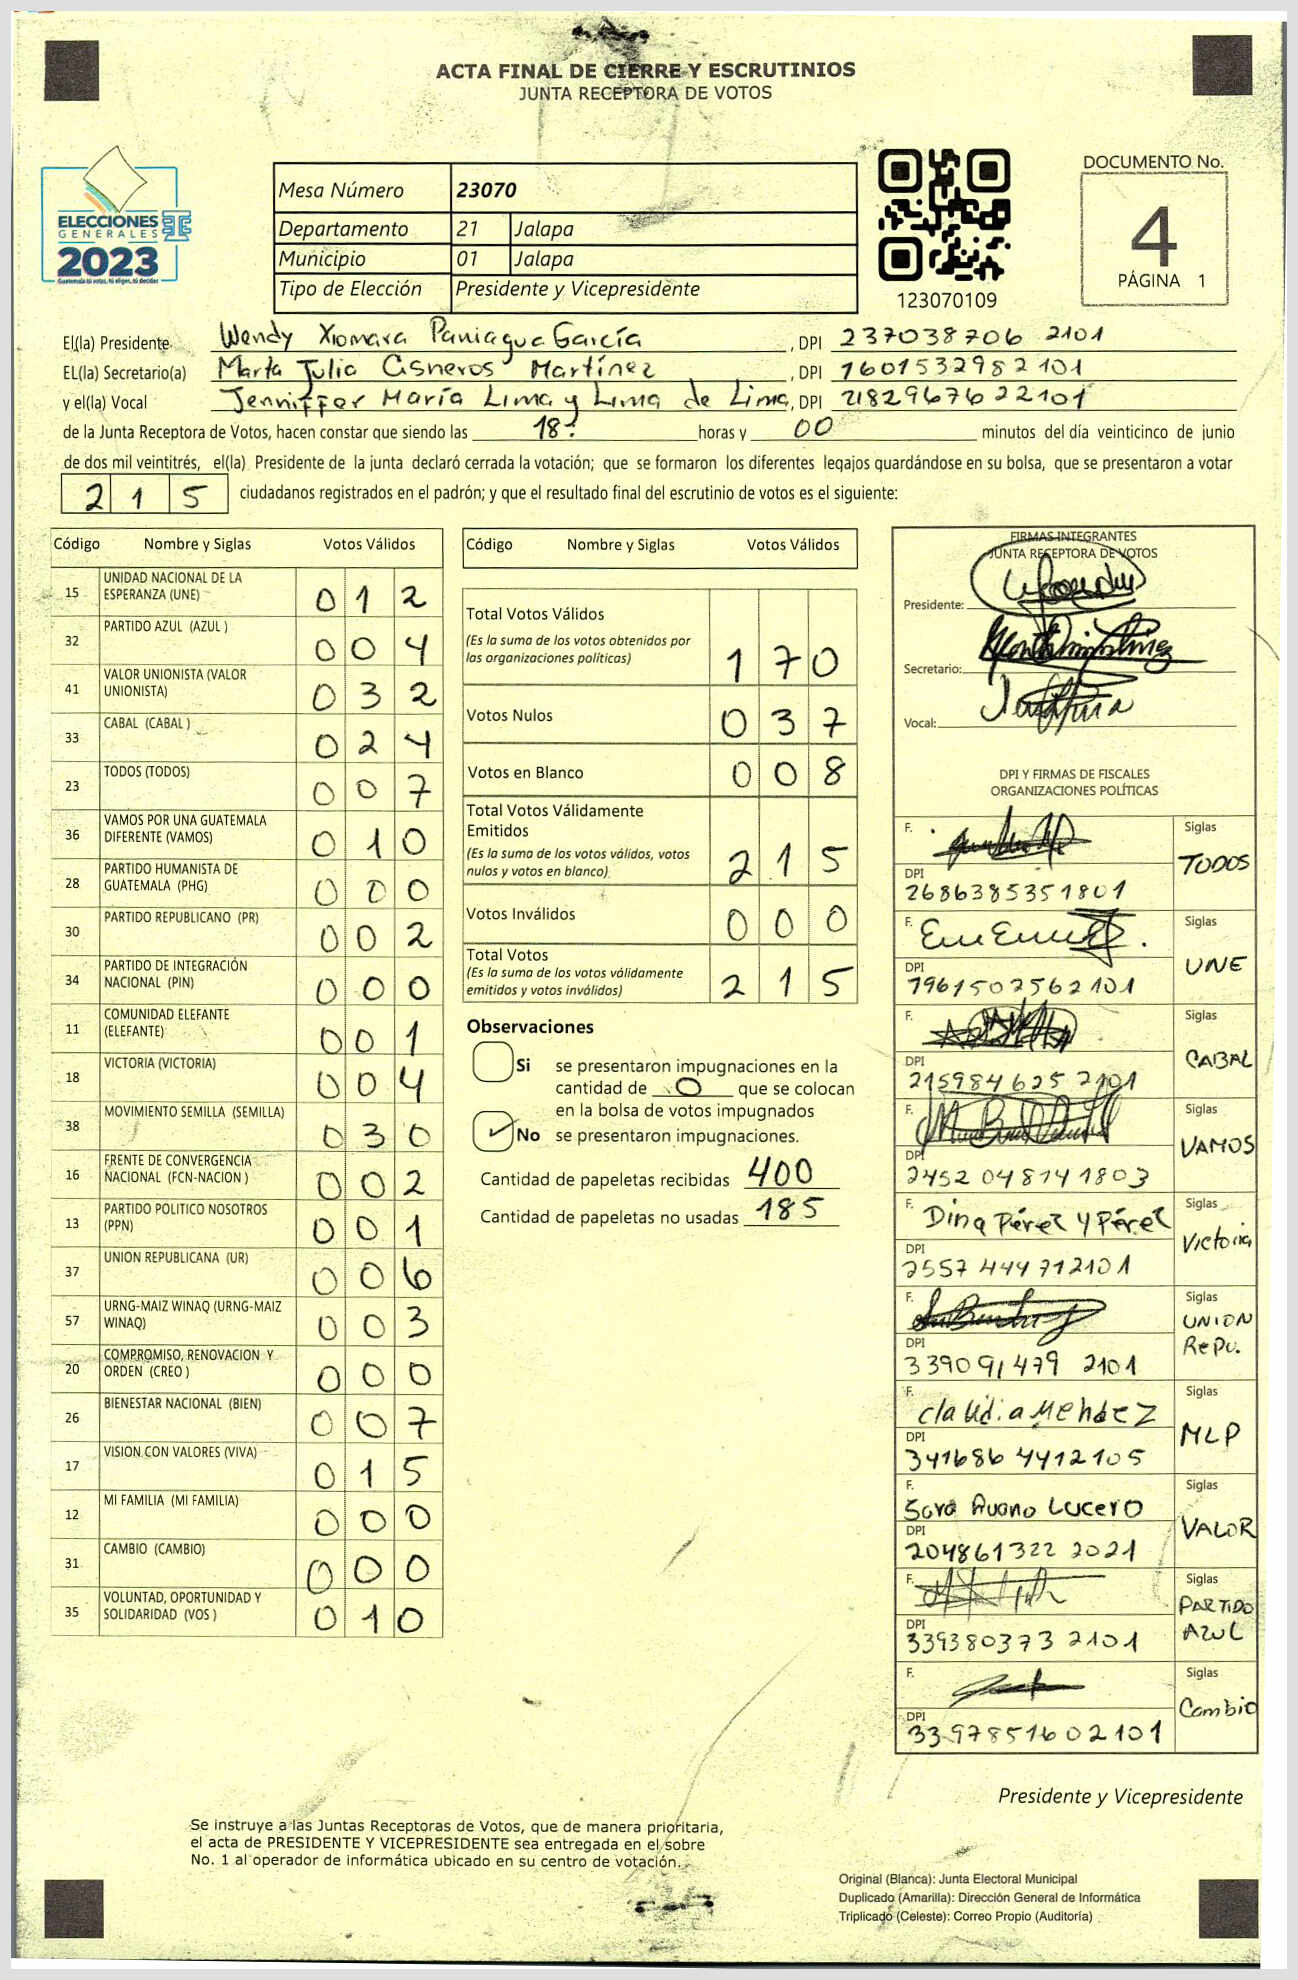 ACTA FINAL DE CIERRE Y ESCRUTINIOS
JUNTA RECEPTORA DE VOTOS
ELECCIONES
GENERALES
2023
Guatemala tú votas, tú eliges, tú decides
Mesa Número 23070
Departamento 21 Jalapa
Municipio 01 Jalapa
Tipo de Elección Presidente y Vicepresidente
123070109
DOCUMENTO No.
4
PÁGINA 1
El(la) Presidente Wendy Xiomara Paniagua García, DPI 237038706 2101
EL(la) Secretario(a) Marta Julia Cisneros Martínez, DPI 1601532982101
y el(la) Vocal Jenniffer María Lima y Lima de Lima, DPI 2182967622101
de la Junta Receptora de Votos, hacen constar que siendo las 18: horas y 00 minutos del día veinticinco de junio
de dos mil veintitrés, el(la) Presidente de la junta declaró cerrada la votación; que se formaron los diferentes legajos guardándose en su bolsa, que se presentaron a votar
215 ciudadanos registrados en el padrón; y que el resultado final del escrutinio de votos es el siguiente:
Código Nombre y Siglas Votos Válidos
15 UNIDAD NACIONAL DE LA ESPERANZA (UNE) 012
32 PARTIDO AZUL (AZUL ) 004
41 VALOR UNIONISTA (VALOR UNIONISTA) 032
33 CABAL (CABAL ) 024
23 TODOS (TODOS) 007
36 VAMOS POR UNA GUATEMALA DIFERENTE (VAMOS) 010
28 PARTIDO HUMANISTA DE GUATEMALA (PHG) 000
30 PARTIDO REPUBLICANO (PR) 002
34 PARTIDO DE INTEGRACIÓN NACIONAL (PIN) 000
11 COMUNIDAD ELEFANTE (ELEFANTE) 001
18 VICTORIA (VICTORIA) 004
38 MOVIMIENTO SEMILLA (SEMILLA) 030
16 FRENTE DE CONVERGENCIA NACIONAL (FCN-NACION ) 002
13 PARTIDO POLITICO NOSOTROS (PPN) 001
37 UNION REPUBLICANA (UR) 006
57 URNG-MAIZ WINAQ (URNG-MAIZ WINAQ) 003
20 COMPROMISO, RENOVACION Y ORDEN (CREO ) 000
26 BIENESTAR NACIONAL (BIEN) 007
17 VISION CON VALORES (VIVA) 015
12 MI FAMILIA (MI FAMILIA) 000
31 CAMBIO (CAMBIO) 000
35 VOLUNTAD, OPORTUNIDAD Y SOLIDARIDAD (VOS ) 010
Código Nombre y Siglas Votos Válidos
Total Votos Válidos
(Es la suma de los votos obtenidos por
las organizaciones políticas) 170
Votos Nulos 037
Votos en Blanco 008
Total Votos Válidamente
Emitidos
(Es la suma de los votos válidos, votos
nulos y votos en blanco) 215
Votos Inválidos 000
Total Votos
(Es la suma de los votos válidamente
emitidos y votos inválidos) 215
Observaciones
Si se presentaron impugnaciones en la
cantidad de 0 que se colocan
en la bolsa de votos impugnados
No se presentaron impugnaciones.
Cantidad de papeletas recibidas 400
Cantidad de papeletas no usadas 185
FIRMAS INTEGRANTES
JUNTA RECEPTORA DE VOTOS
Presidente:
Secretario:
Vocal:
DPI Y FIRMAS DE FISCALES
ORGANIZACIONES POLÍTICAS
F. Siglas TODOS
DPI 2686385351801
F. Siglas UNE
DPI 7961502562101
F. Siglas CABAL
DPI 215984625 2101
F. Siglas VAMOS
DPI 2452 04814 1803
F. Dina Pérez y Pérez Siglas Victoria
DPI 2557 444 712101
F. Siglas UNION Repu.
DPI 339091479 2101
F. Claudia Mendez Siglas MLP
DPI 341686 4412105
F. Sara Ruano Lucero Siglas VALOR
DPI 204861322 2021
F. Siglas PARTIDO AZUL
DPI 339380373 2101
F. Siglas Cambio
DPI 3397851602101
Presidente y Vicepresidente
Se instruye a las Juntas Receptoras de Votos, que de manera prioritaria,
el acta de PRESIDENTE Y VICEPRESIDENTE sea entregada en el sobre
No. 1 al operador de informática ubicado en su centro de votación.
Original (Blanca): Junta Electoral Municipal
Duplicado (Amarilla): Dirección General de Informática
Triplicado (Celeste): Correo Propio (Auditoría)